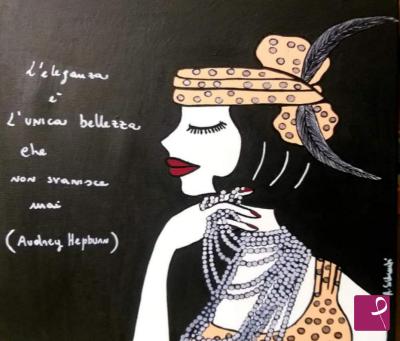 L'eleganza
è
L'unica bellezza
che
non svanisce
mai
(Audrey Hepburn)